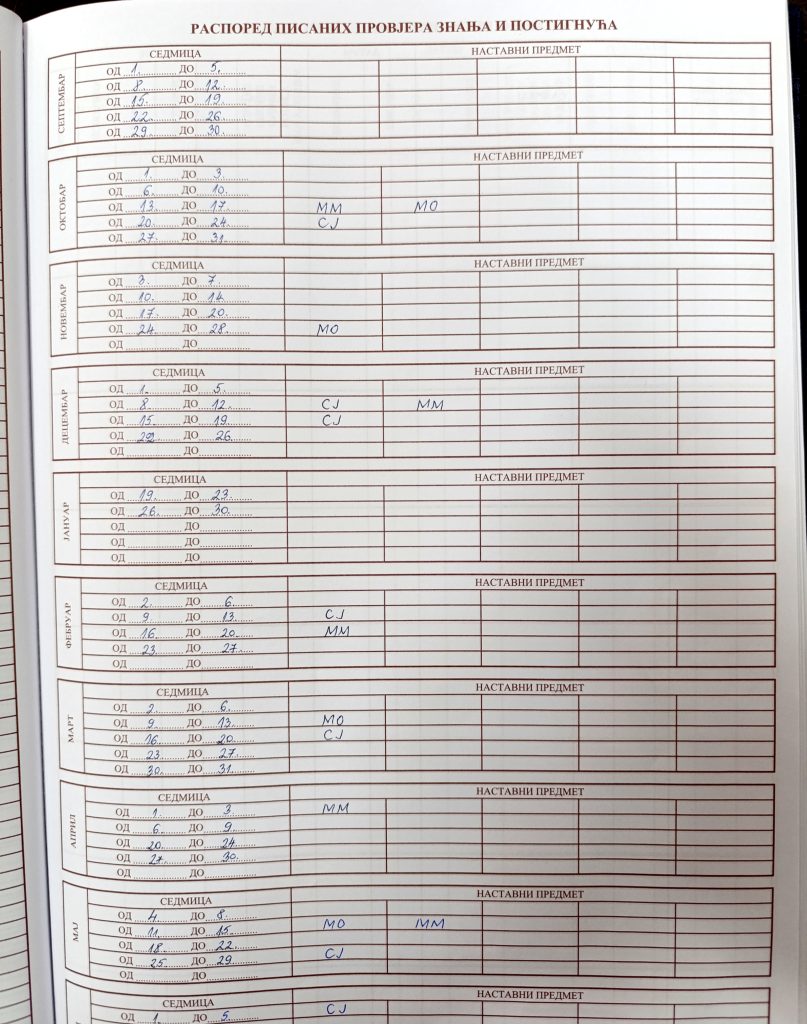 РАСПОРЕД ПИСАНИХ ПРОВЈЕРА ЗНАЊА И ПОСТИГНУЋА
СЕПТЕМБАР
СЕДМИЦА НАСТАВНИ ПРЕДМЕТ
ОД 1. ДО 5.
ОД 8. ДО 12.
ОД 15. ДО 19.
ОД 22. ДО 26.
ОД 29. ДО 30.
ОКТОБАР
СЕДМИЦА НАСТАВНИ ПРЕДМЕТ
ОД 1. ДО 3.
ОД 6. ДО 10.
ОД 13. ДО 17. ММ МО
ОД 20. ДО 24. СЈ
ОД 27. ДО 31.
НОВЕМБАР
СЕДМИЦА НАСТАВНИ ПРЕДМЕТ
ОД 3. ДО 7.
ОД 10. ДО 14.
ОД 17. ДО 20.
ОД 24. ДО 28. МО
ОД ДО
ДЕЦЕМБАР
СЕДМИЦА НАСТАВНИ ПРЕДМЕТ
ОД 1. ДО 5.
ОД 8. ДО 12. СЈ ММ
ОД 15. ДО 19. СЈ
ОД 22. ДО 26.
ОД ДО
ЈАНУАР
СЕДМИЦА НАСТАВНИ ПРЕДМЕТ
ОД 19. ДО 23.
ОД 26. ДО 30.
ОД ДО
ОД ДО
ОД ДО
ФЕБРУАР
СЕДМИЦА НАСТАВНИ ПРЕДМЕТ
ОД 2. ДО 6.
ОД 9. ДО 13. СЈ
ОД 16. ДО 20. ММ
ОД 23. ДО 27.
ОД ДО
МАРТ
СЕДМИЦА НАСТАВНИ ПРЕДМЕТ
ОД 2. ДО 6.
ОД 9. ДО 13. МО
ОД 16. ДО 20. СЈ
ОД 23. ДО 27.
ОД 30. ДО 31.
АПРИЛ
СЕДМИЦА НАСТАВНИ ПРЕДМЕТ
ОД 1. ДО 3. ММ
ОД 6. ДО 9.
ОД 20. ДО 24.
ОД 27. ДО 30.
ОД ДО
МАЈ
СЕДМИЦА НАСТАВНИ ПРЕДМЕТ
ОД 4. ДО 8.
ОД 11. ДО 15. МО ММ
ОД 18. ДО 22.
ОД 25. ДО 29. СЈ
ОД ДО
СЕДМИЦА НАСТАВНИ ПРЕДМЕТ
ОД 1. ДО 5. СЈ